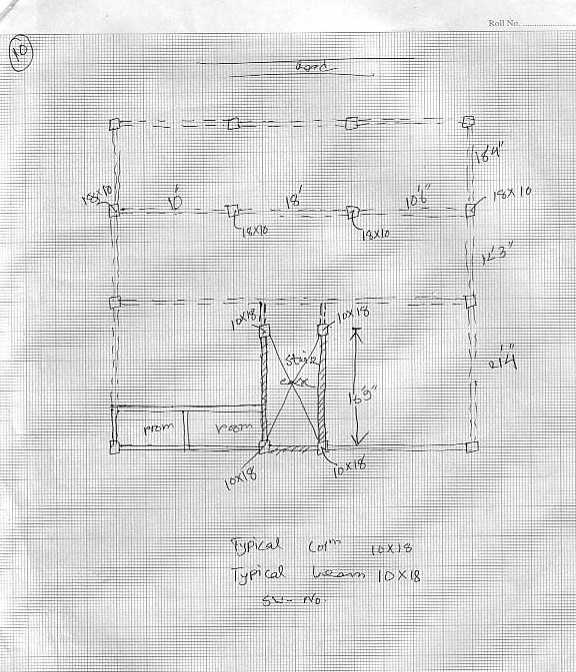 Roll No.
10
Road
16'4"
18x10
10'
18'
10'6"
18x10
18x10
18x10
12'3"
10x18
10x18
Stair
21'4"
16'9"
room
room
10x18
10x18
Typical Colm 10x18
Typical beam 10x18
SW- No.